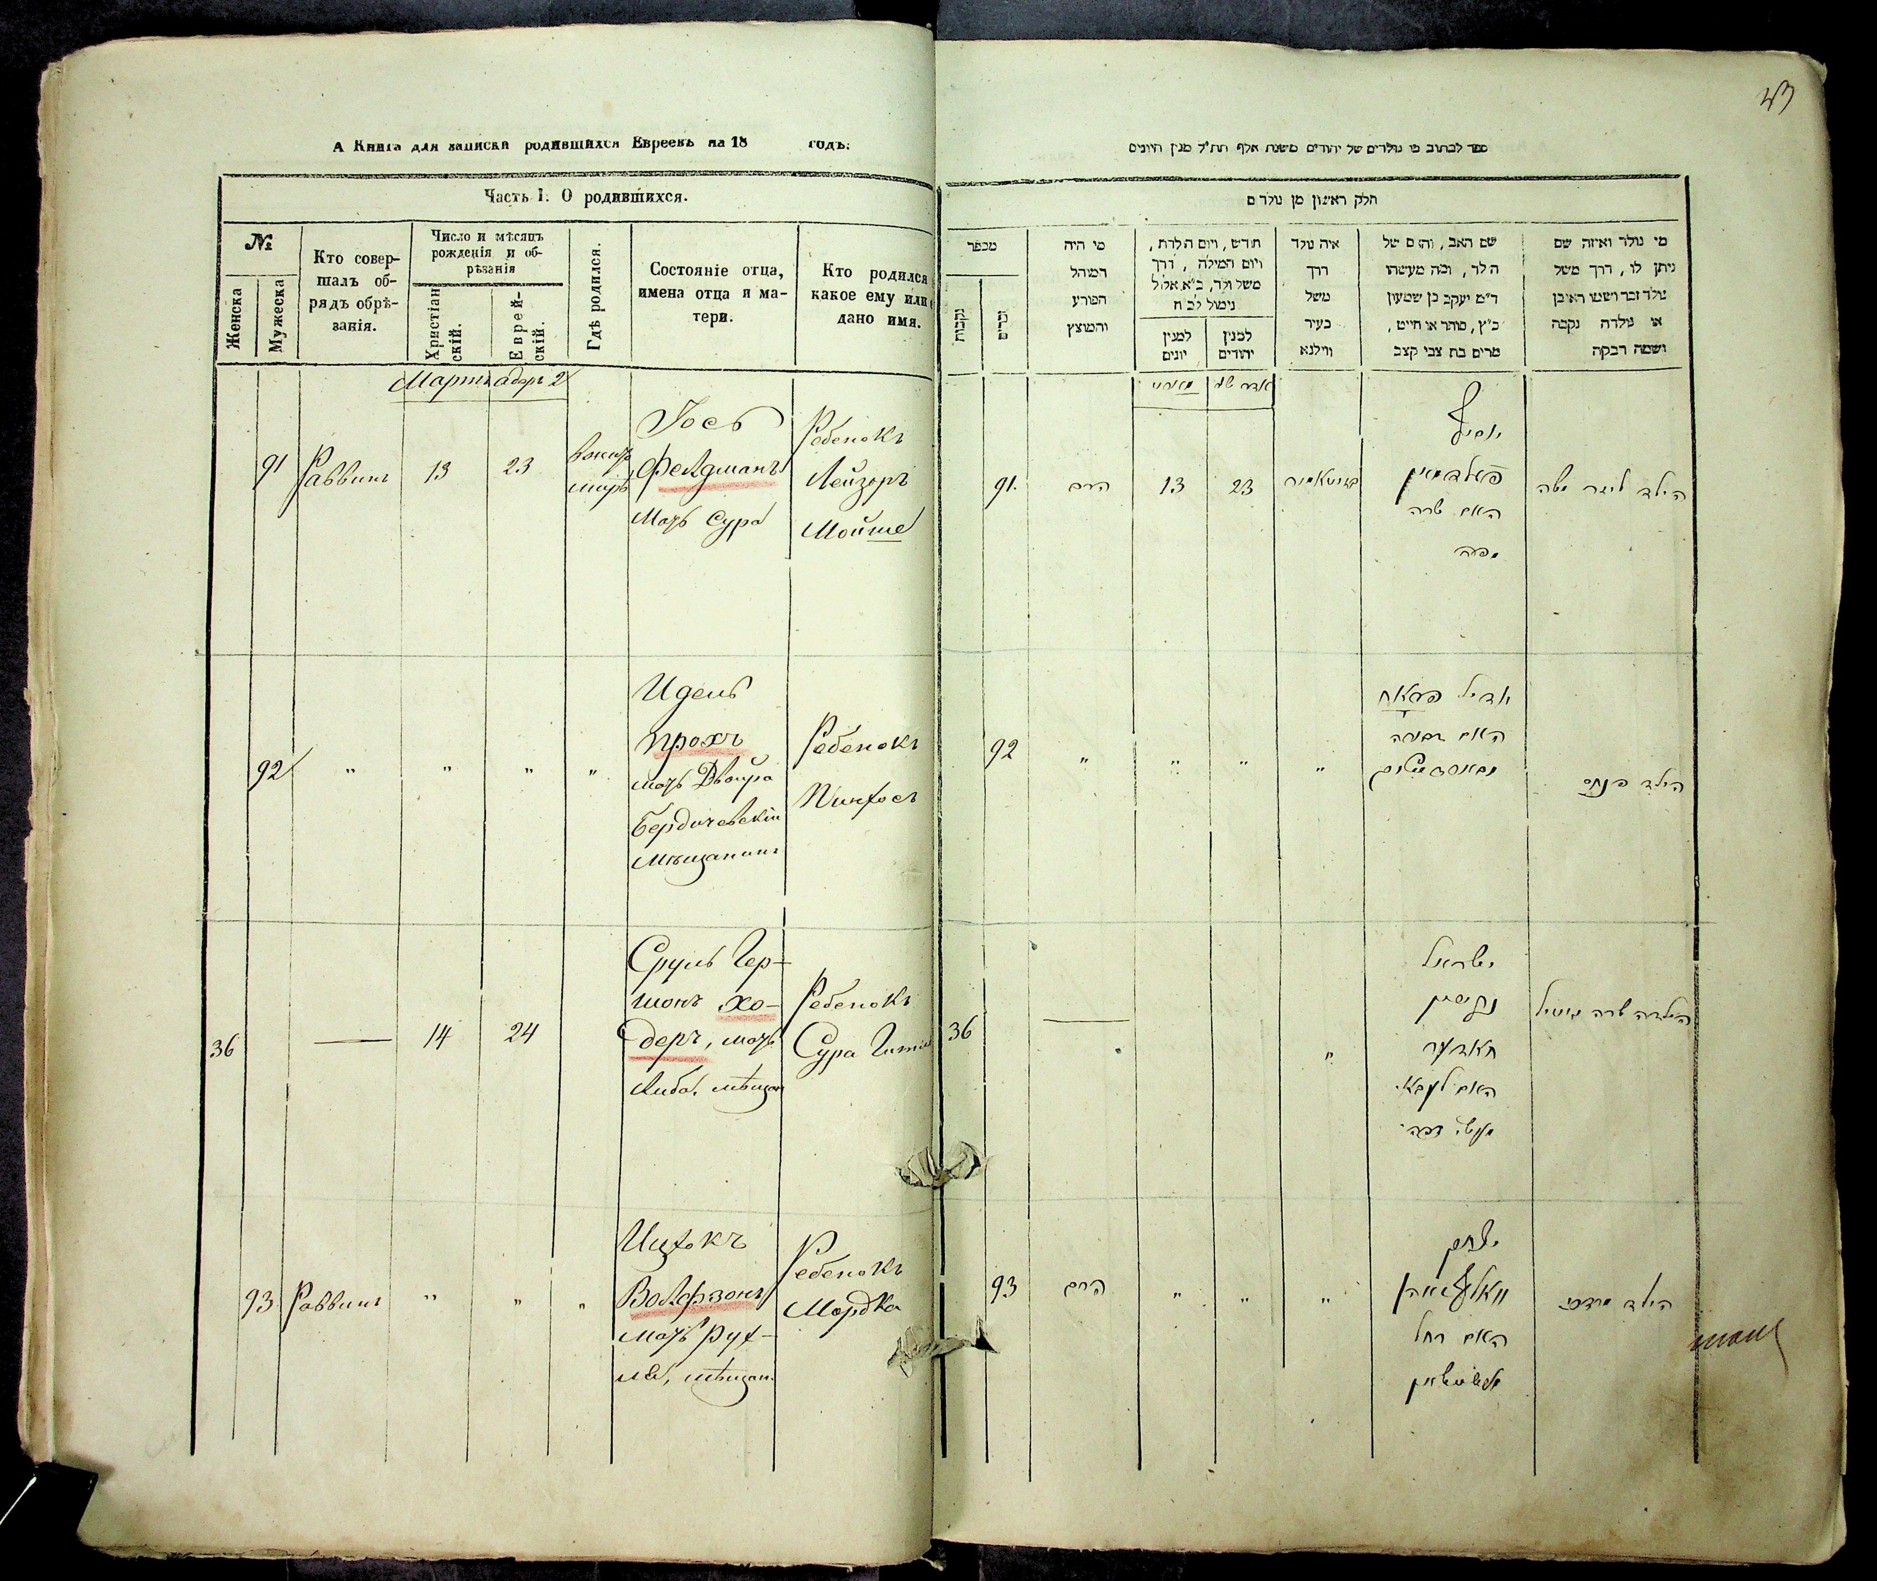 А Книга для записки родившихся Евреевъ на 18 годъ.
Часть I. О родившихся.
№
Женска
Мужеска
Кто совер-
шалъ об-
рядъ обрѣ-
занія.
Число и мѣсяцъ
рожденія и об-
рѣзанія
Христіан
скій.
Еврей-
скій.
Гдѣ родился.
Состояніе отца,
имена отца и ма-
тери.
Кто родился
какое ему или
дано имя.
Мартъ адаръ 2
91
Раввинъ
13
23
Іось
Фелдманъ
мать Сура
Ребенокъ
Лейзоръ
Мойше
92
"
"
"
"
Идель
Прохъ
мать Двойра
Бердичевскій
мѣщанинъ
Ребенокъ
Пинхосъ
36
14
24
Сруль Гер-
шонъ Хо-
деръ, мать
Либа, мѣщан
Ребенокъ
Сура
93
Раввинъ
"
"
"
Ицхокъ
Волфзонъ
мать Рух-
ля, мѣщан.
Ребенокъ
Мордко
ספר לכתוב מי נולדים של יהודים משנת אלף תת״ל מנין היונים
חלק ראשון מן נולדים
מספר
נקבות
זכרים
מי היה
המוהל
הפורע
והמוצץ
חודש, ויום הלדת,
ויום המילה, דרך
משל ולד, כ״א אלול
נימול לכ״ח
למנין
יונים
למנין
יהודים
איה נולד
דרך
משל
בעיר
ווילנא
שם האב, והאם של
הלד, ומה מעשהו
ד״מ יעקב בן שמעון
כ״ץ, סוחר או חייט,
מרים בת צבי קצב
מי נולד ואיזה שם
ניתן לו, דרך משל
נולד זכר ושמו ראובן
או נולדה נקבה
ושמה רבקה
91.
הרב
13
23
יוסף
פעלדמאן
האם שרה
הילד ליזר משה
92
"
"
"
"
אידיל פראח
האם דבורה
הילד פנחס
36
"
ישראל
גרשון
חאדער
האם ליבא
הילדה שרה גיטיל
93
הרב
"
"
"
יצחק
וואלפזאהן
האם רחל
הילד מרדכי